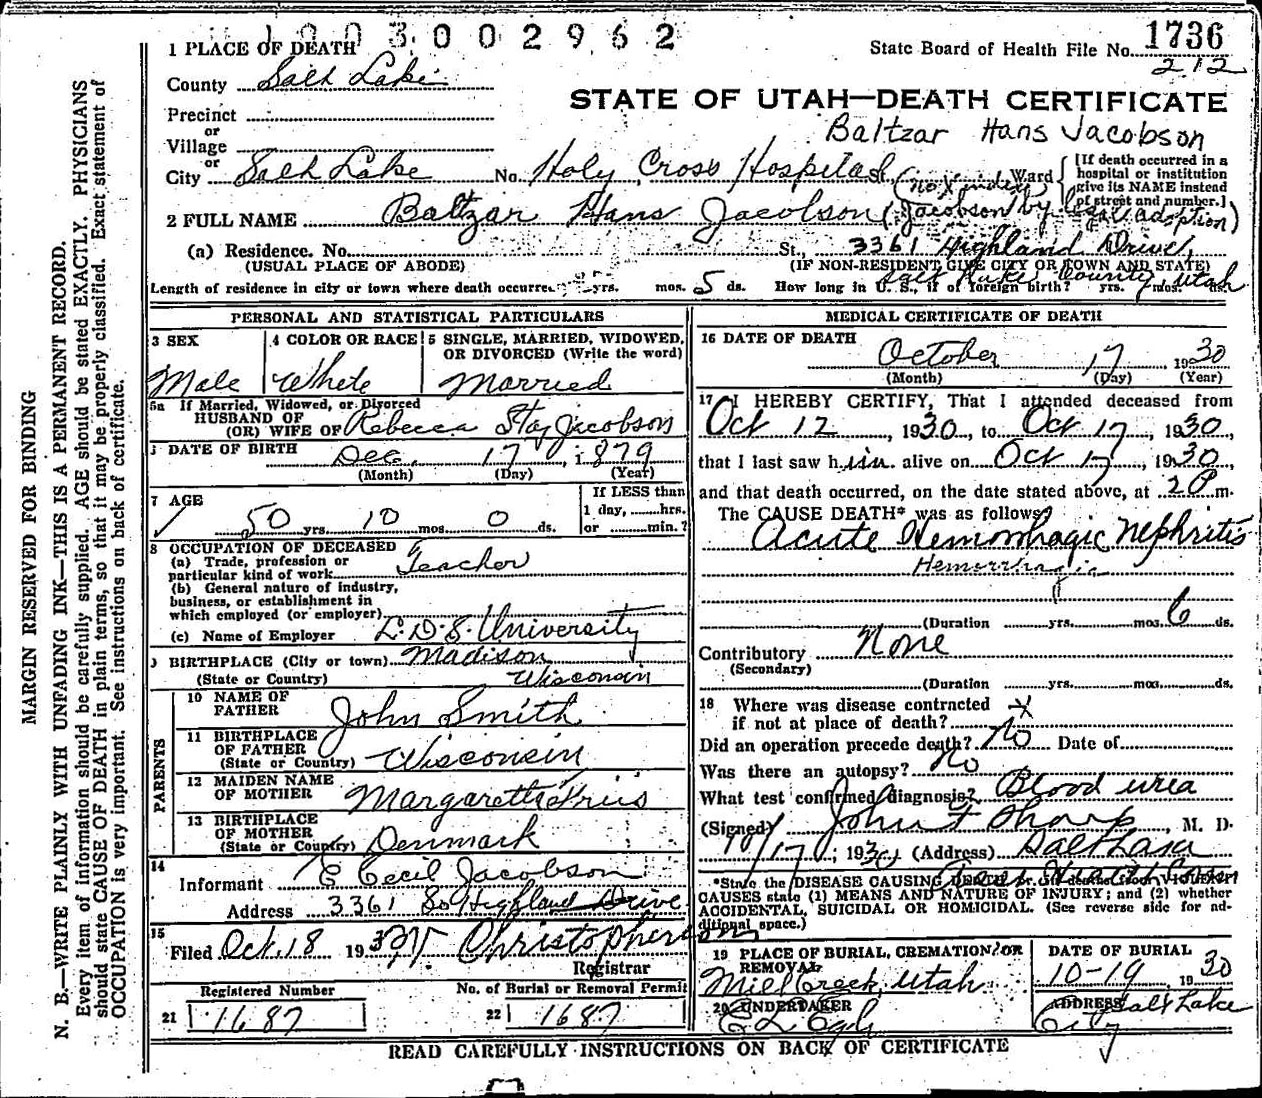 1003002962
State Board of Health File No. 1736
212
1 PLACE OF DEATH
County Salt Lake
STATE OF UTAH—DEATH CERTIFICATE
Precinct
or
Village
Baltzar Hans Jacobson
or
City Salt Lake No. Holy Cross Hospital Ward
[If death occurred in a hospital or institution give its NAME instead of street and number.]
2 FULL NAME Baltzar Hans Jacobson (Jacobson by legal adoption)
(a) Residence. No. St., 3361 Highland Drive,
(USUAL PLACE OF ABODE) (IF NON-RESIDENT GIVE CITY OR TOWN AND STATE)
Salt Lake County, Utah
Length of residence in city or town where death occurred yrs. mos. 5 ds. How long in U. S., if of foreign birth? yrs. mos. ds.
PERSONAL AND STATISTICAL PARTICULARS
3 SEX
Male
4 COLOR OR RACE
White
5 SINGLE, MARRIED, WIDOWED, OR DIVORCED (Write the word)
Married
5a If Married, Widowed, or Divorced
HUSBAND OF
(OR) WIFE OF Rebecca Stay Jacobson
DATE OF BIRTH Dec. 17, 1879
(Month) (Day) (Year)
7 AGE
50 yrs. 10 mos. 0 ds.
If LESS than
1 day, hrs.
or min.?
8 OCCUPATION OF DECEASED
(a) Trade, profession or
particular kind of work Teacher
(b) General nature of industry,
business, or establishment in
which employed (or employer)
(c) Name of Employer L.D.S. University
9 BIRTHPLACE (City or town) Madison
(State or Country) Wisconsin
PARENTS
10 NAME OF
FATHER John Smith
11 BIRTHPLACE
OF FATHER
(State or Country) Wisconsin
12 MAIDEN NAME
OF MOTHER Margarett
13 BIRTHPLACE
OF MOTHER
(State or Country) Denmark
14
Informant Cecil Jacobson
Address 3361 So Highland Drive
15
Filed Oct. 18 1930 Christopherson
Registrar
Registered Number
21 1687
No. of Burial or Removal Permit
22 1687
MEDICAL CERTIFICATE OF DEATH
16 DATE OF DEATH
October 17, 1930
(Month) (Day) (Year)
17 I HEREBY CERTIFY, That I attended deceased from
Oct 12, 1930, to Oct 17, 1930,
that I last saw him alive on Oct 17, 1930,
and that death occurred, on the date stated above, at 2 P m.
The CAUSE DEATH* was as follows?
Acute Hemorrhagic Nephritis
Hemorrhagic
(Duration yrs. mos. 6 ds.
Contributory None
(Secondary)
(Duration yrs. mos. ds.
18 Where was disease contracted
if not at place of death?
Did an operation precede death? No Date of
Was there an autopsy? No
What test confirmed diagnosis? Blood urea
(Signed) John F Sharp, M. D.
10/17, 1930 (Address)
*State the DISEASE CAUSING DEATH, or
CAUSES state (1) MEANS AND NATURE OF INJURY; and (2) whether
ACCIDENTAL, SUICIDAL OR HOMICIDAL. (See reverse side for additional space.)
19 PLACE OF BURIAL, CREMATION OR
REMOVAL
Mill Creek, Utah
DATE OF BURIAL
10-19 1930
20 UNDERTAKER
ADDRESS Salt Lake
City
READ CAREFULLY INSTRUCTIONS ON BACK OF CERTIFICATE
MARGIN RESERVED FOR BINDING
N. B.—WRITE PLAINLY WITH UNFADING INK—THIS IS A PERMANENT RECORD.
Every item of information should be carefully supplied. AGE should be stated EXACTLY. PHYSICIANS
should state CAUSE OF DEATH in plain terms, so that it may be properly classified. Exact statement of
OCCUPATION is very important. See instructions on back of certificate.